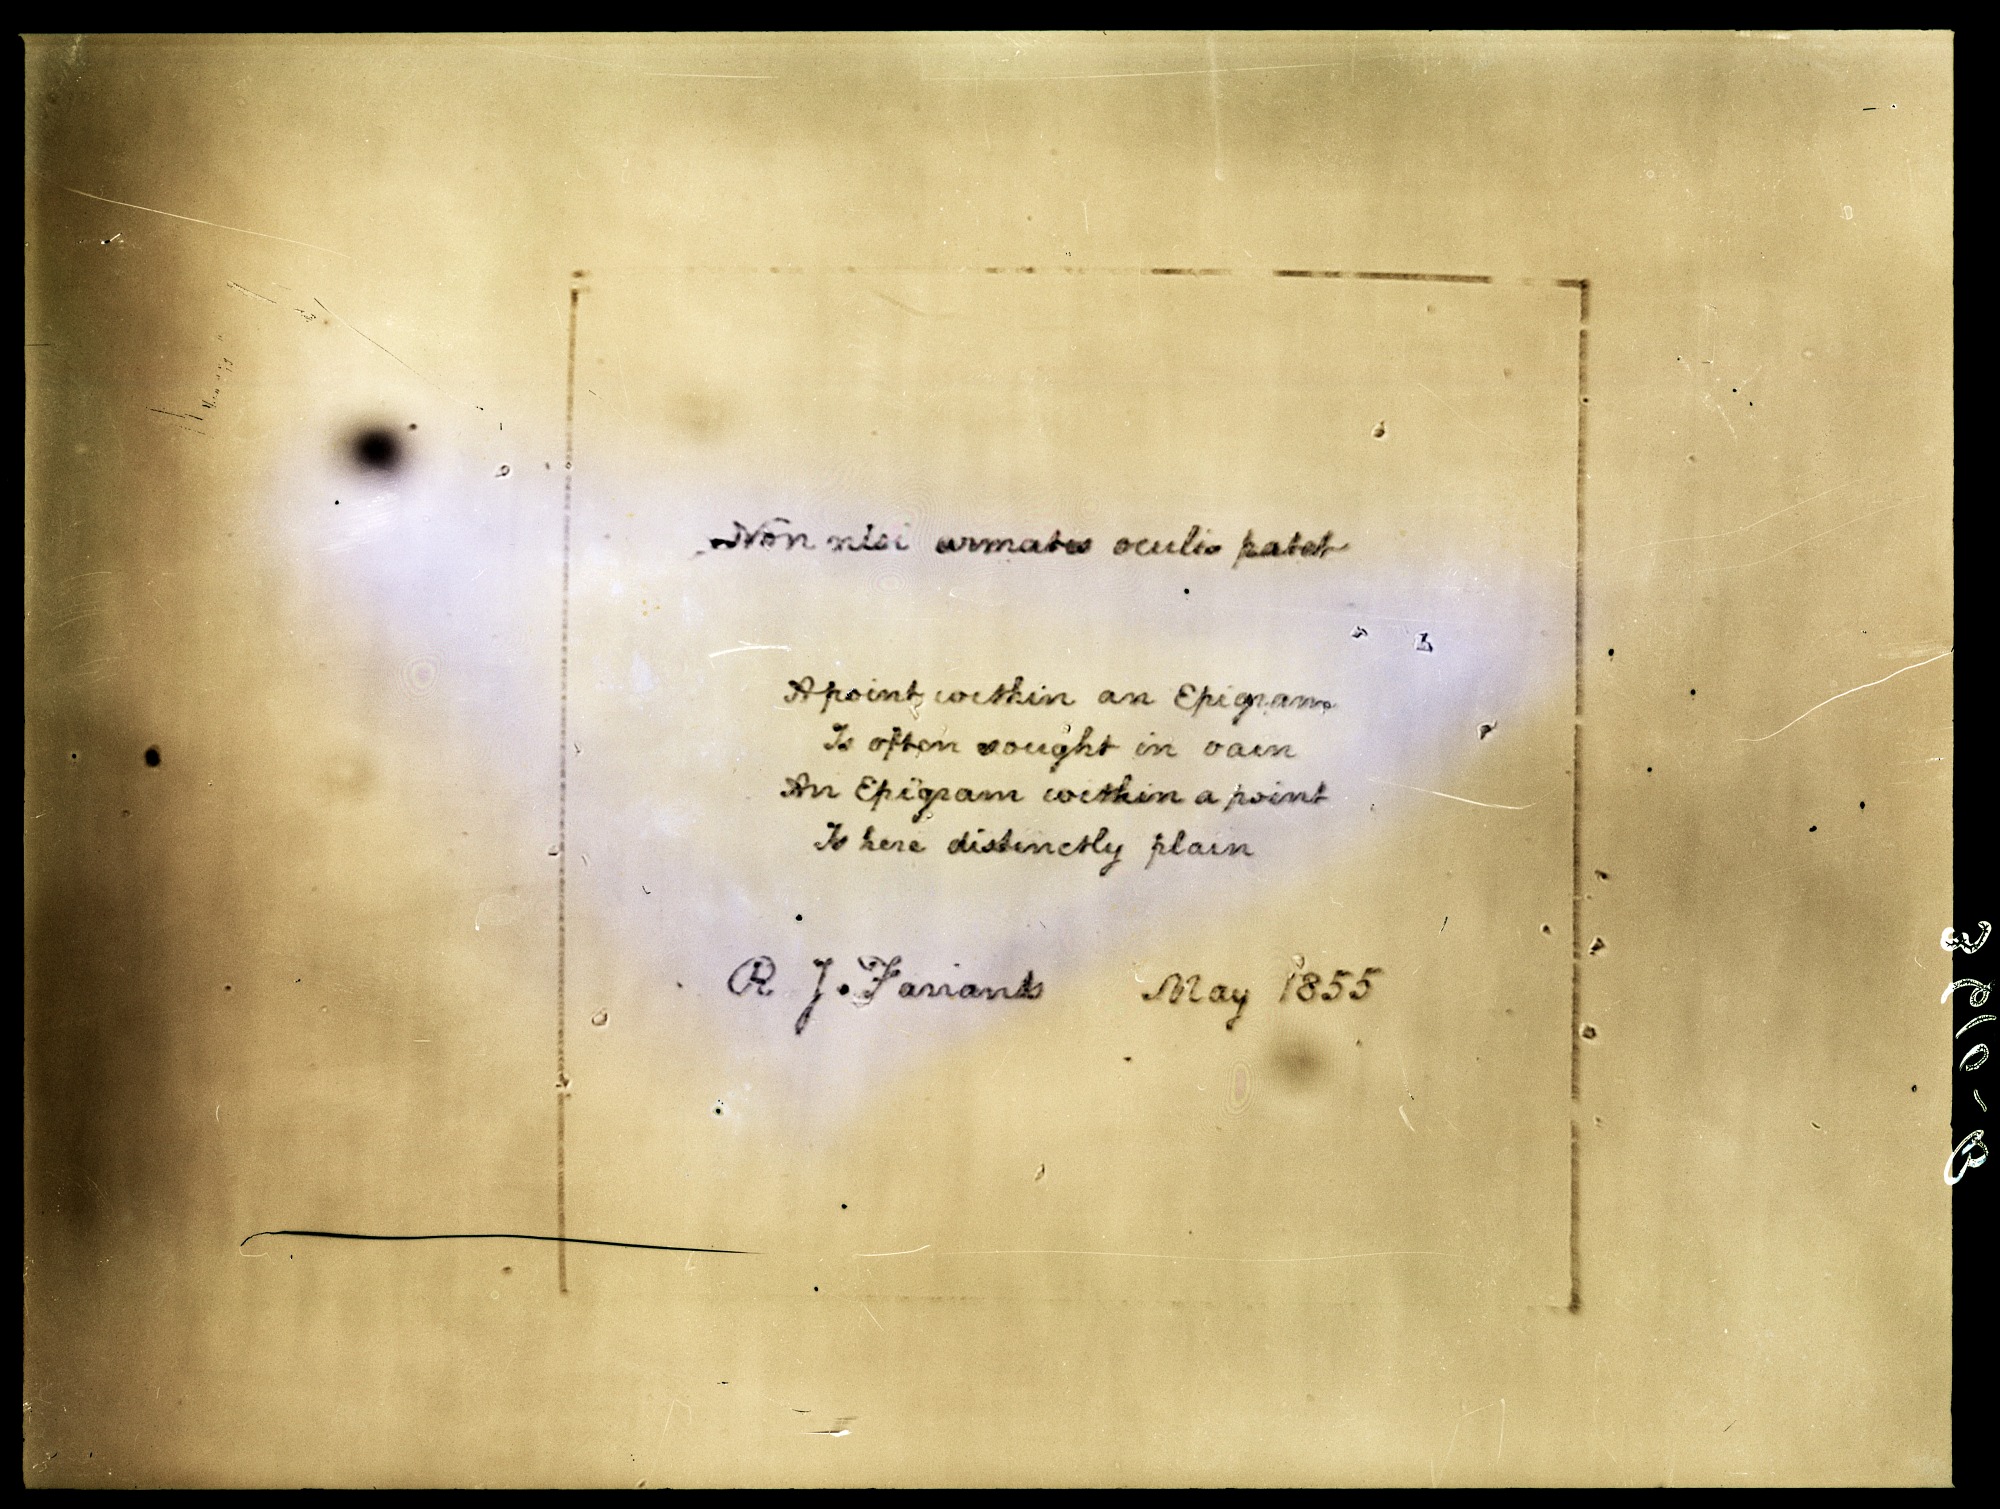 Non nisi armatis oculis patet
A point within an Epigram
Is often sought in vain
An Epigram within a point
Is here distinctly plain
R J. Farrants May 1855